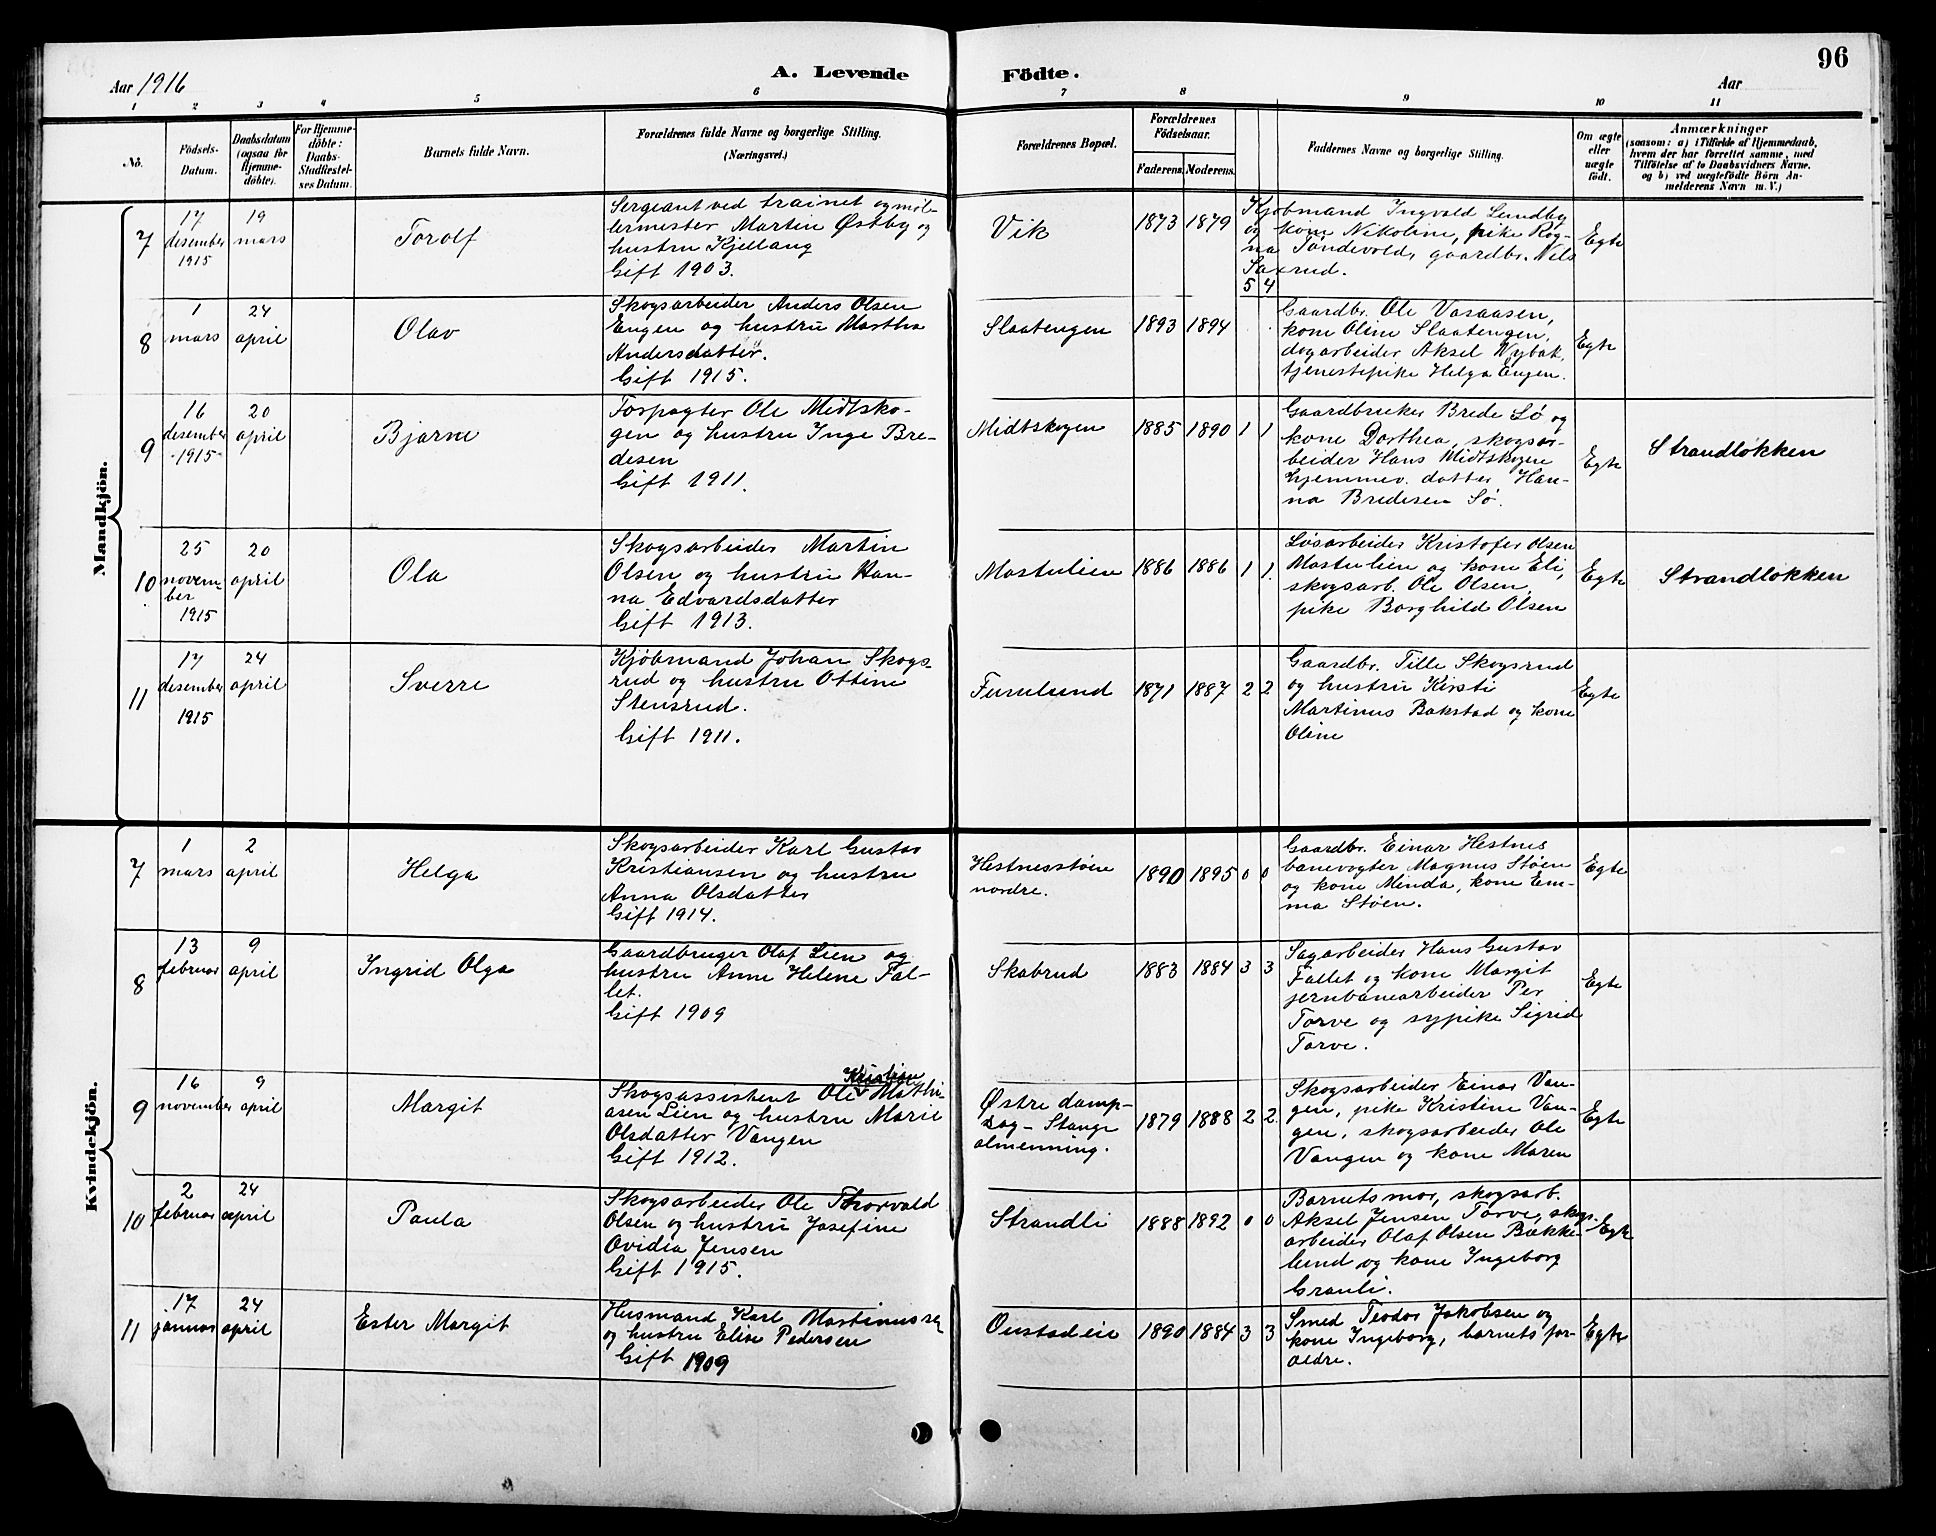 Aar 1916
A. Levende
Födte.
Aar
96
1 2 3 4 5 6 7 8 9 10 11
No.
Födsels-
Datum.
Daabsdatum
(ogsaa for
Hjemme-
döbte).
For Hjemme-
döbte:
Daabs-
Stadfæstel-
ses Datum.
Barnets fulde Navn.
Forældrenes fulde Navne og borgerlige Stilling.
(Næringsvei.)
Forældrenes Bopæl.
Forældrenes
Födselsaar.
Faderens. Moderens.
Faddernes Navne og borgerlige Stilling.
Om ægte
eller
uægte
födt.
Anmærkninger
(saasom: a) i Tilfælde af Hjemmedaab,
hvem der har forrettet samme, med
Tilföielse af to Daabsvidners Navne.
og b) ved uægtefödte Börn An-
melderens Navn m. V.)
Mandkjön.
7
17
desember
1915
19
mars
Torolf
Sergeant ved trainet og møl-
lermester Martin Østby og
hustru Kjellaug
Gift 1903.
Vik
1873 1879
5 4
Kjøbmand Ingvald Lundby
og kone Nikoline, pike Rag-
na Tøndevold, gaardbr. Nils
Saxrud.
Egte
8
1
mars
24
april
Olav
Skogsarbeider Anders Olsen
Engen og hustru Martha
Andersdatter.
Gift 1915.
Slaatengen
1893 1894
Gaardbr. Ole Vasaasen,
kone Oline Slaatengen,
dagarbeider Aksel Nybak,
tjenestepike Helga Engen.
Egte
9
16
desember
1915
20
april
Bjarne
Forpagter Ole Midtsko-
gen og hustru Inge Bre-
desen
Gift 1911.
Midtskogen
1885 1890 1 1
Gaardbruker Brede Sø og
kone Dorthea, skogsar-
beider Hans Midtskogen
hjemmev. datter Han-
na Bredesen Sø.
Egte
Strandløkken
10
25
novem-
ber
1915
20
april
Ola
Skogsarbeider Martin
Olsen og hustru Han-
na Edvardsdatter
Gift 1913.
Mastulien
1886 1886 1 1.
Løsarbeider Kristofer Olsen
Mastulien og kone Eli,
skogsarb. Ole Olsen,
pike Borghild Olsen
Egte
Strandløkken
11
17
desember
1915
24
april
Sverre
Kjøbmand Johan Skogs-
rud og hustru Ottine
Stensrud.
Gift 1911.
Furulund
1871 1887 2 2
Gaardbr. Tille Skogsrud
og hustru Kirsti
Martinus Bakstad og kone
Oline
Egte
Kvindekjön.
7
1
mars
2
april
Helga
Skogsarbeider Karl Gustav
Kristiansen og hustru
Anna Olsdatter
Gift 1914.
Hestnesstøen
nordre.
1890 1895 0 0
Gaardbr. Einar Hestnes
banevogter Magnus Støen
og kone Minda, kone Em-
ma Støen.
Egte
8
13
februar
9
april
Ingrid Olga
Gaardbruger Olaf Lien og
hustru Anne Helene Fal-
let.
Gift 1909
Skabrud
1883 1884 3 3
Sagarbeider Hans Gustav
Fallet og kone Margit
jernbanearbeider Per
Torve og sypike Sigrid
Torve.
Egte
9
16
november
9
april
Margit
Kristian
Skogsassistent Ole Mathi-
asen Lien og hustru Marie
Olsdatter Vangen
Gift 1912.
Østre damp-
sag - Stange
almenning.
1879 1888 2 2
Skogsarbeider Einar Van-
gen, pike Kristine Van-
gen, skogsarbeider Ole
Vangen og kone Maren
Egte
10
2
februar
24
april
Paula
Skogsarbeider Ole Thorvald
Olsen og hustru Josefine
Ovidia Jensen
Gift 1915.
Strandli
1888 1892 0 0
Barnets mor, skogsarb.
Aksel Jensen Torve, skogs-
arbeider Olaf Olsen Bække-
lund og kone Ingeborg
Granli.
Egte
11
17
januar
24
april
Ester Margit
Husmand Karl Martinussen
og hustru Elise Pedersen
Gift 1909
Oustadeie
1890 1884 3 3
Smed Teodor Jakobsen og
kone Ingeborg, barnets for-
ældre.
Egte